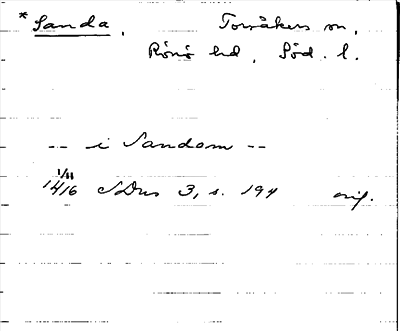 * Sanda, Torsåkers sn,
Rönö hd, Söd. l.
-- i Sandom --
1/11
1416 SDns 3, s. 194 orig.